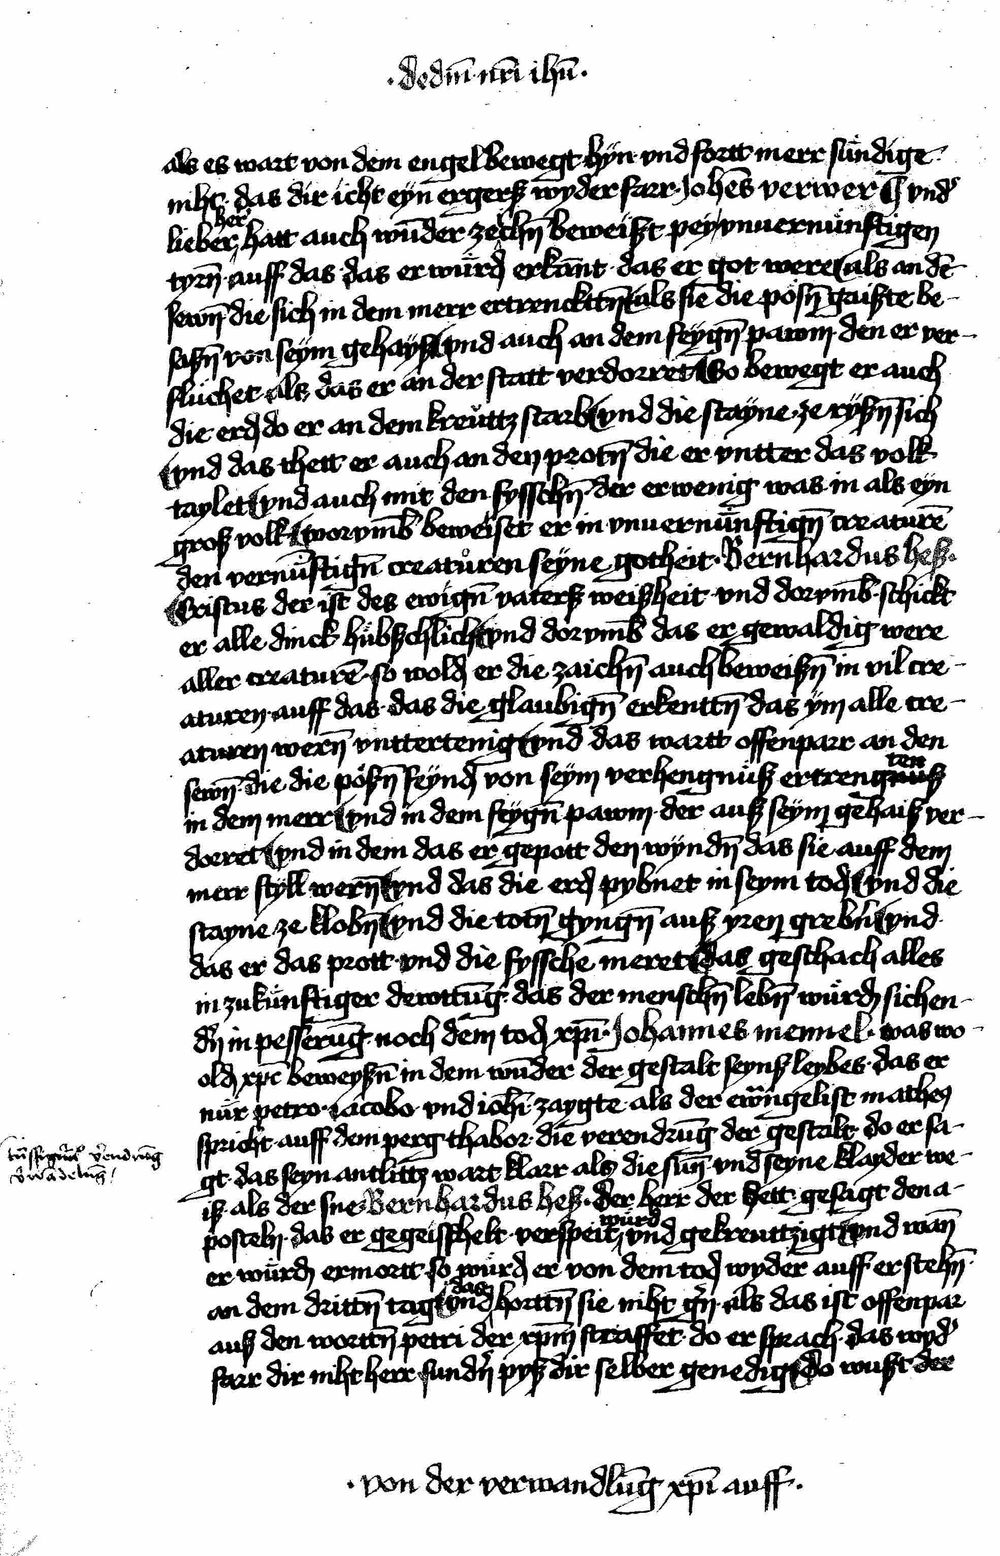 · dedm̄ · nr̄i ih̄u ·
als es wart von dem engel bewegt hyn vnd fortt merr sündige
niht · das dir icht eyn ergerß wyder farr · Joh̄es verwer vnd
her
lieber hatt auch wūder zechn̄ beweißt pey vnuernünftigen
tyrn̄ · auff das das er würd erkānt · das er got were als an dē
sewn̄ die sich in dem merr ertrenckttn̄ als sie die pösn̄ gaißte be-
saßn̄ von seym gehayß vnd auch an dem feygn̄ pawm · den er ver-
fluchet als das er an der statt verdorret So bewegt er auch
die erd do er an dem kreüttz starb vnd die stayne ze ryßn̄ sich
vnd das thett er auch an den protn̄ die er vntter das volk
taylet vnd auch mit den fysschn̄ der er wenig was in als eyn
groß volk worvmb beweiset er in vnuernünftign̄ creaturē
den vernüftign̄ creaturen seyne gotheit · Bernhardus heß ·
Cristus der ist des ewign̄ vaterß weißheit vnd dorvmb schickt
er alle dinck hübschlich vnd dorvmb das er gewaldig were
aller creaturē so wold er die zaichn̄ auch beweißn̄ in vil cre-
aturen · auff das · das die glaubign̄ erkenttn̄ das ym alle cre-
aturen wern̄ vnttertenig vnd das wartt offenparr an den
sewn̄ · die die pößn̄ feynd von seym verhengnüß ertrengnuß
ten
in dem merr vnd in dem feygn̄ pawm · der auß seym gehaiß ver-
dorret vnd in dem das er gepott den wyndn̄ das sie auff dem
merr styll wern̄ vnd das die erd pybnet in seym tod vnd die
stayne ze klobn̄ vnd die totn̄ gyngn̄ auß yren grebn̄ vnd
das er das prott vnd die fyssche meret das geschach alles
in zukünftiger dewttūg · das der menschn̄ lebn̄ würd sichen-
dn̄ in pesserūg noch dem tod xp̄i · Johannes mennel · was wo-
old xp̄c beweysn̄ in dem wūder der gestalt seynß leybes · das er
nür petro · iacobo · vnd ioh̄i · zaygte · als der ewangelist matheus
spricht · auff dem perg thabor · die verendrūg der gestalt · do er sa-
gt das seyn antlittz wart klarr als die sun̄ vnd seyne klayder we-
iß als der sne · Bernhardus heß · der herr der hett gesagt den a-
posteln · das er gegeisshelt verspeit vnd gekreuttzigt vnd wān
würd
er würd ermortt · so würd er von dem tod wyder auff erstehn̄
an dem drittn̄ tag vnd horttn̄ sie niht gern̄ · als das ist offenpar
das
auß den worttn̄ petri der xp̄m straffet · do er sprach · das wyd
farr dir niht herr sundn̄ pyß dir selber genedig do wußt der
· von der verwandlūg xp̄i auff ·